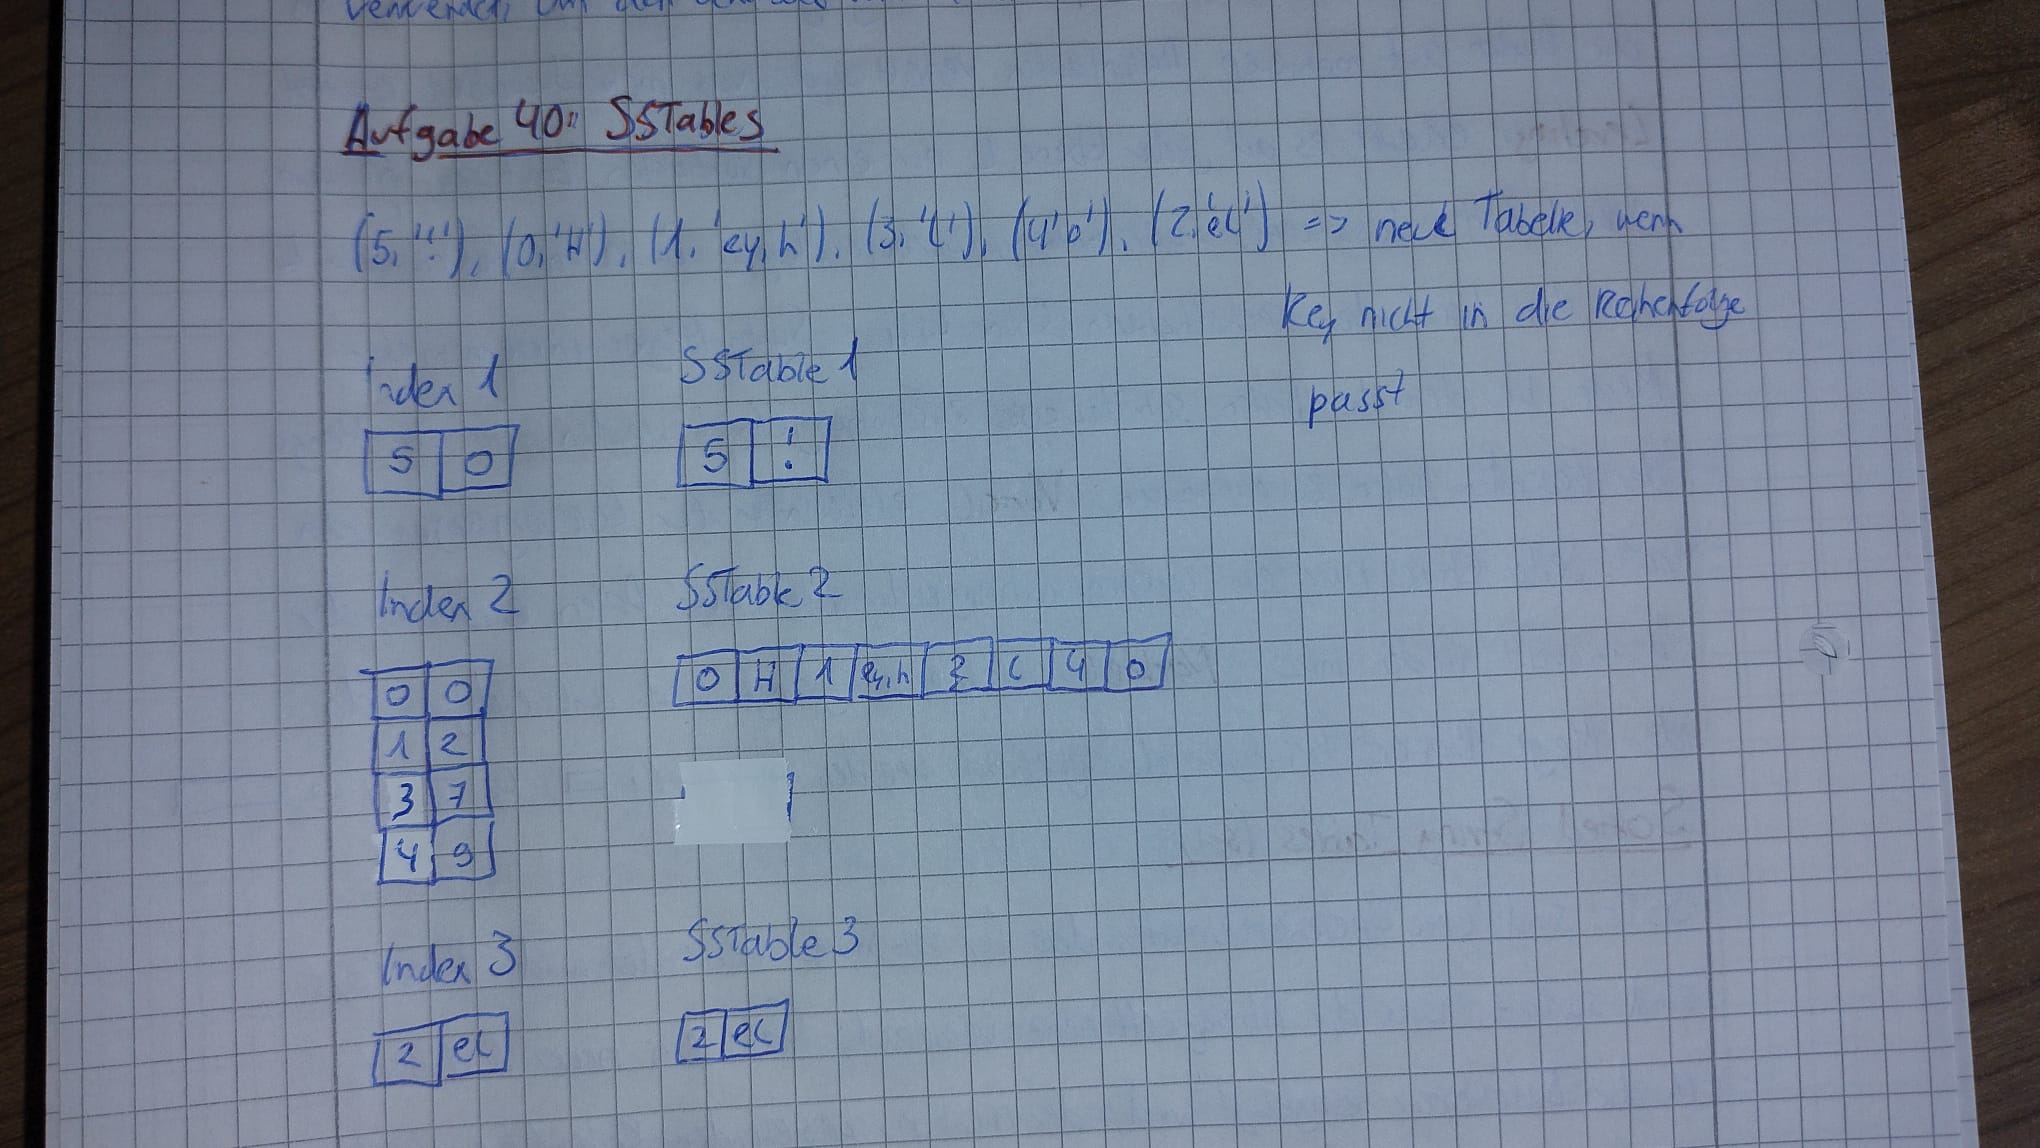 Aufgabe 40: SSTables
(5, '!'), (0, 'H'), (1, 'ey, h'), (3, 'l'), (4 'o'), (2, 'el') => neue Tabelle, wenn
Key nicht in die Reihenfolge
passt
Index 1 SSTable 1
5 0 5 !
Index 2 SSTable 2
0 0 0 H 1 ey, h 3 l 4 o
1 2
3 7
4 9
Index 3 SSTable 3
2 el 2 el